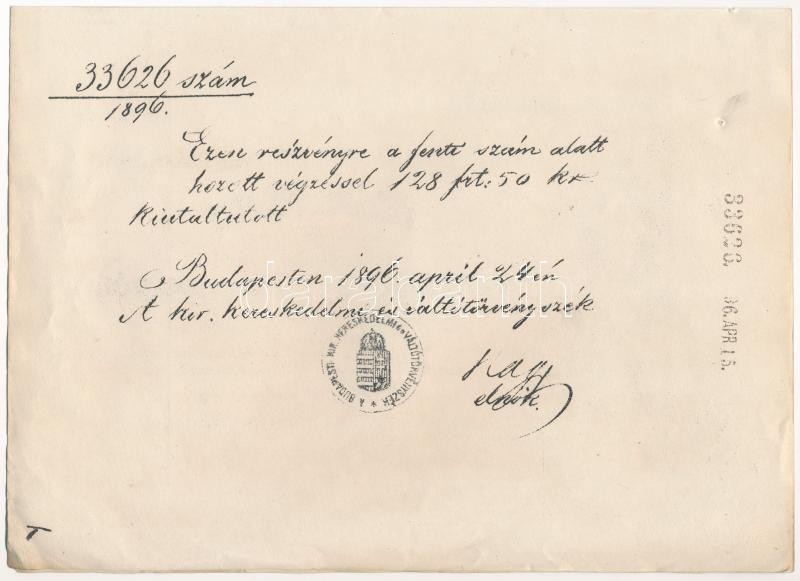 33626 szám
1896.
Ezen reszvényre a fenti szám alatt
hozott végzéssel 128 frt: 50 kr
kiutaltutott
Budapesten 1896. april 24 én
A kir. kereskedelmi és váltótörvényszék
A BUDAPESTI KIR. KERESKEDELMI ÉS VÁLTÓTÖRVÉNYSZÉK *
Nagy
elnök.
33626
96.APR 15.
darabanth
T